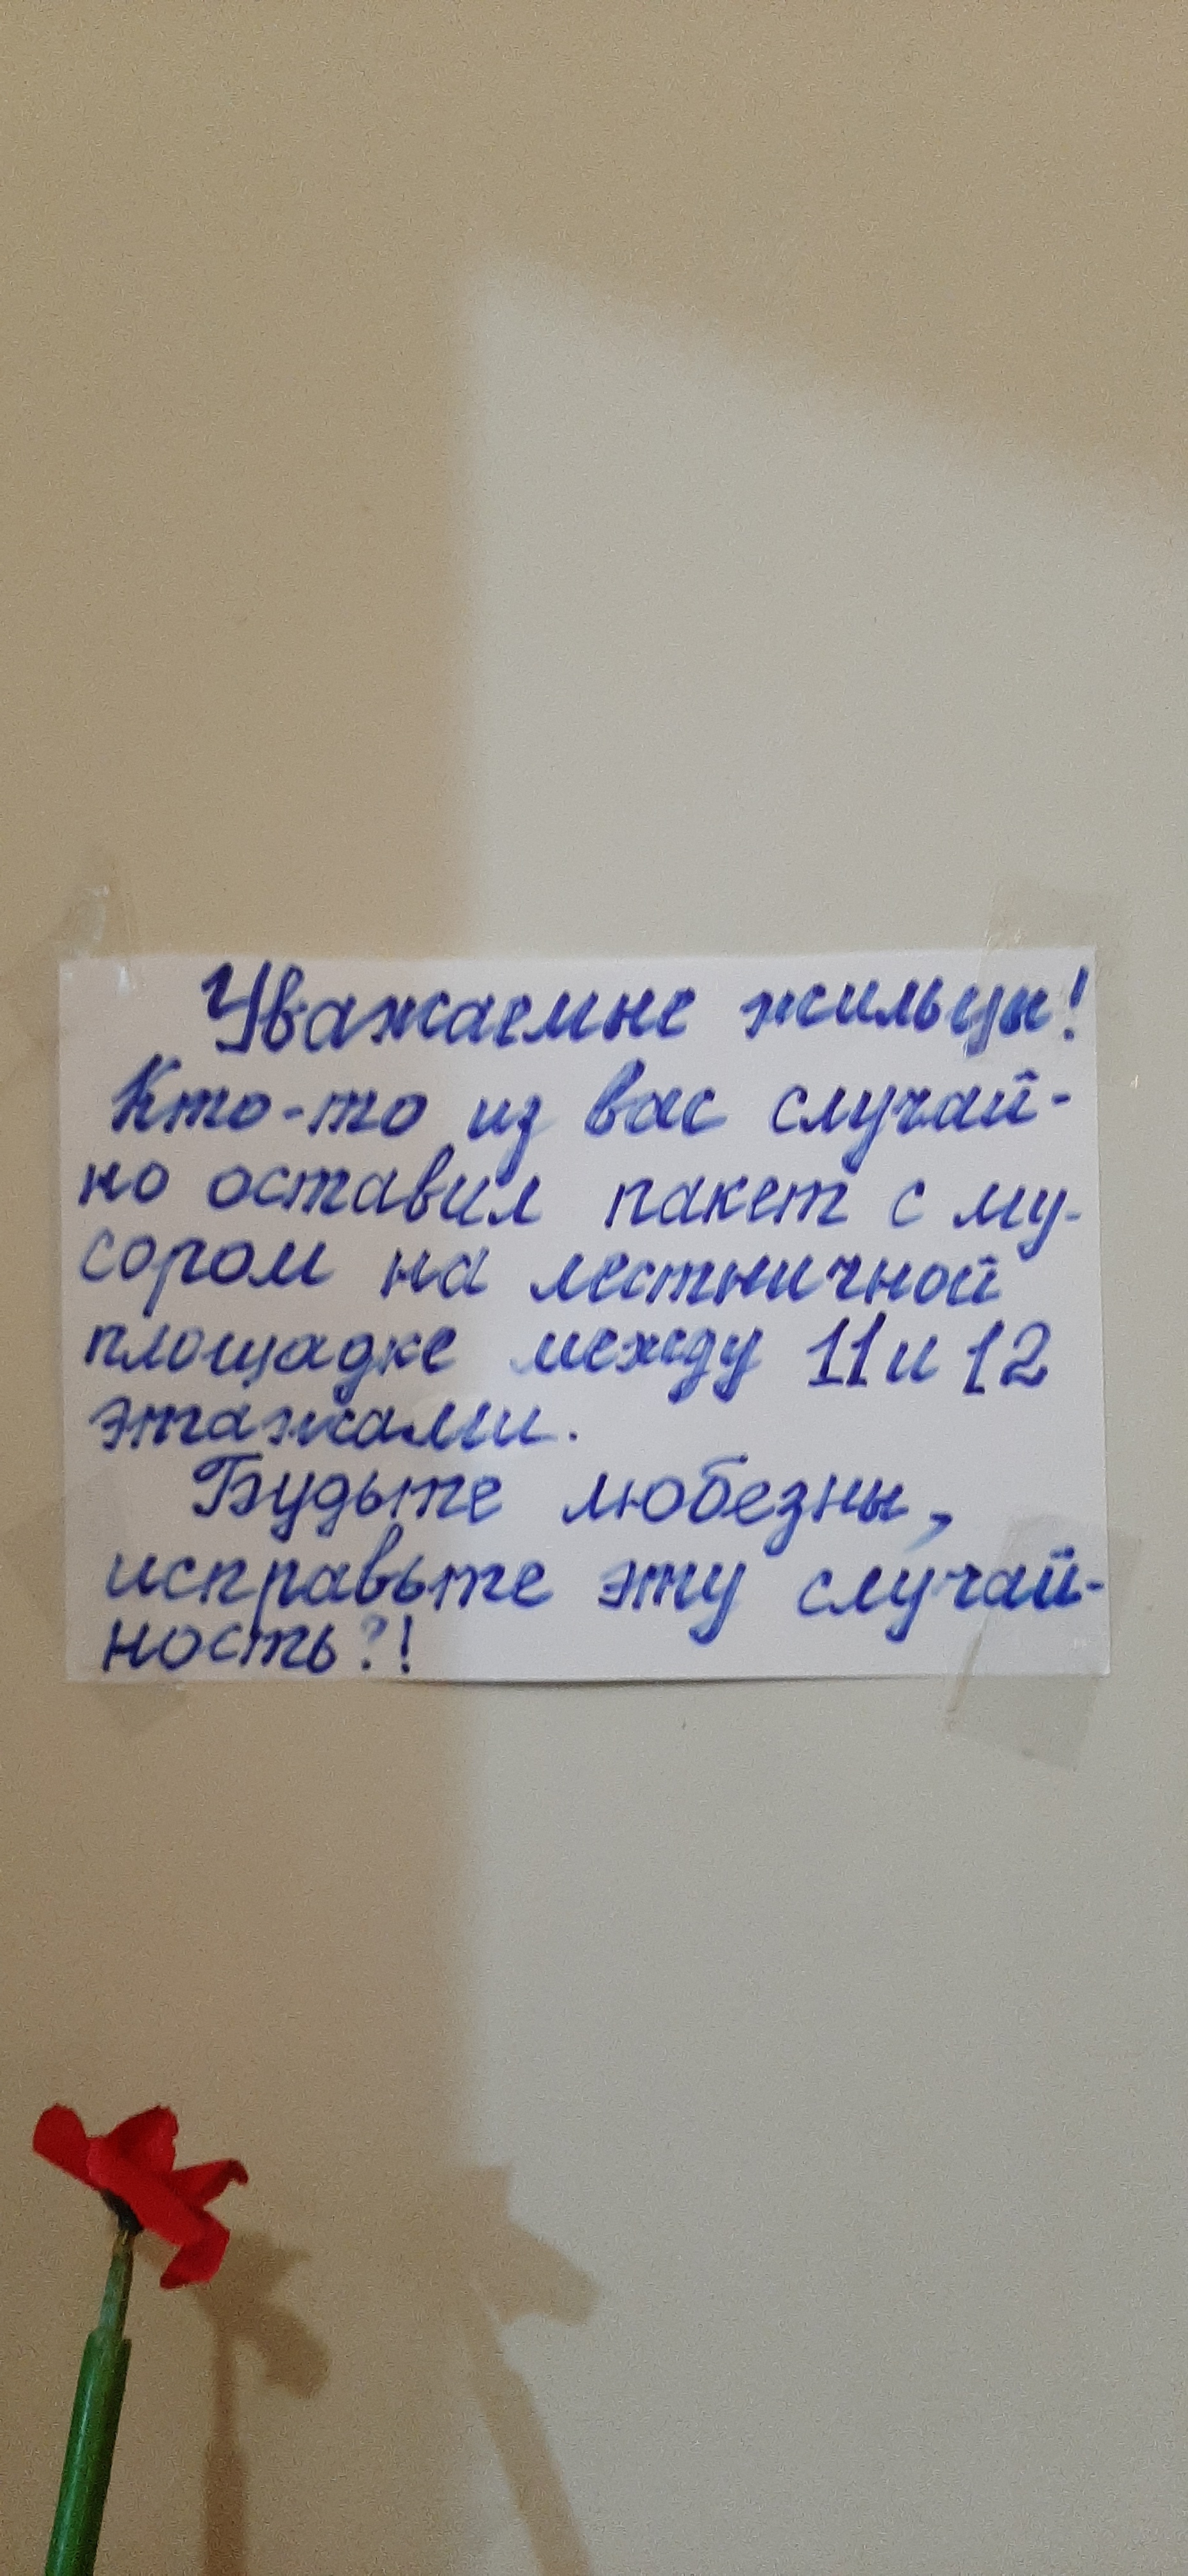 Уважаемые жильцы!
Кто-то из вас случай-
но оставил пакет с му-
сором на лестничной
площадке между 11 и 12
этажами.
Будьте любезны,
исправьте эту случай-
ность?!